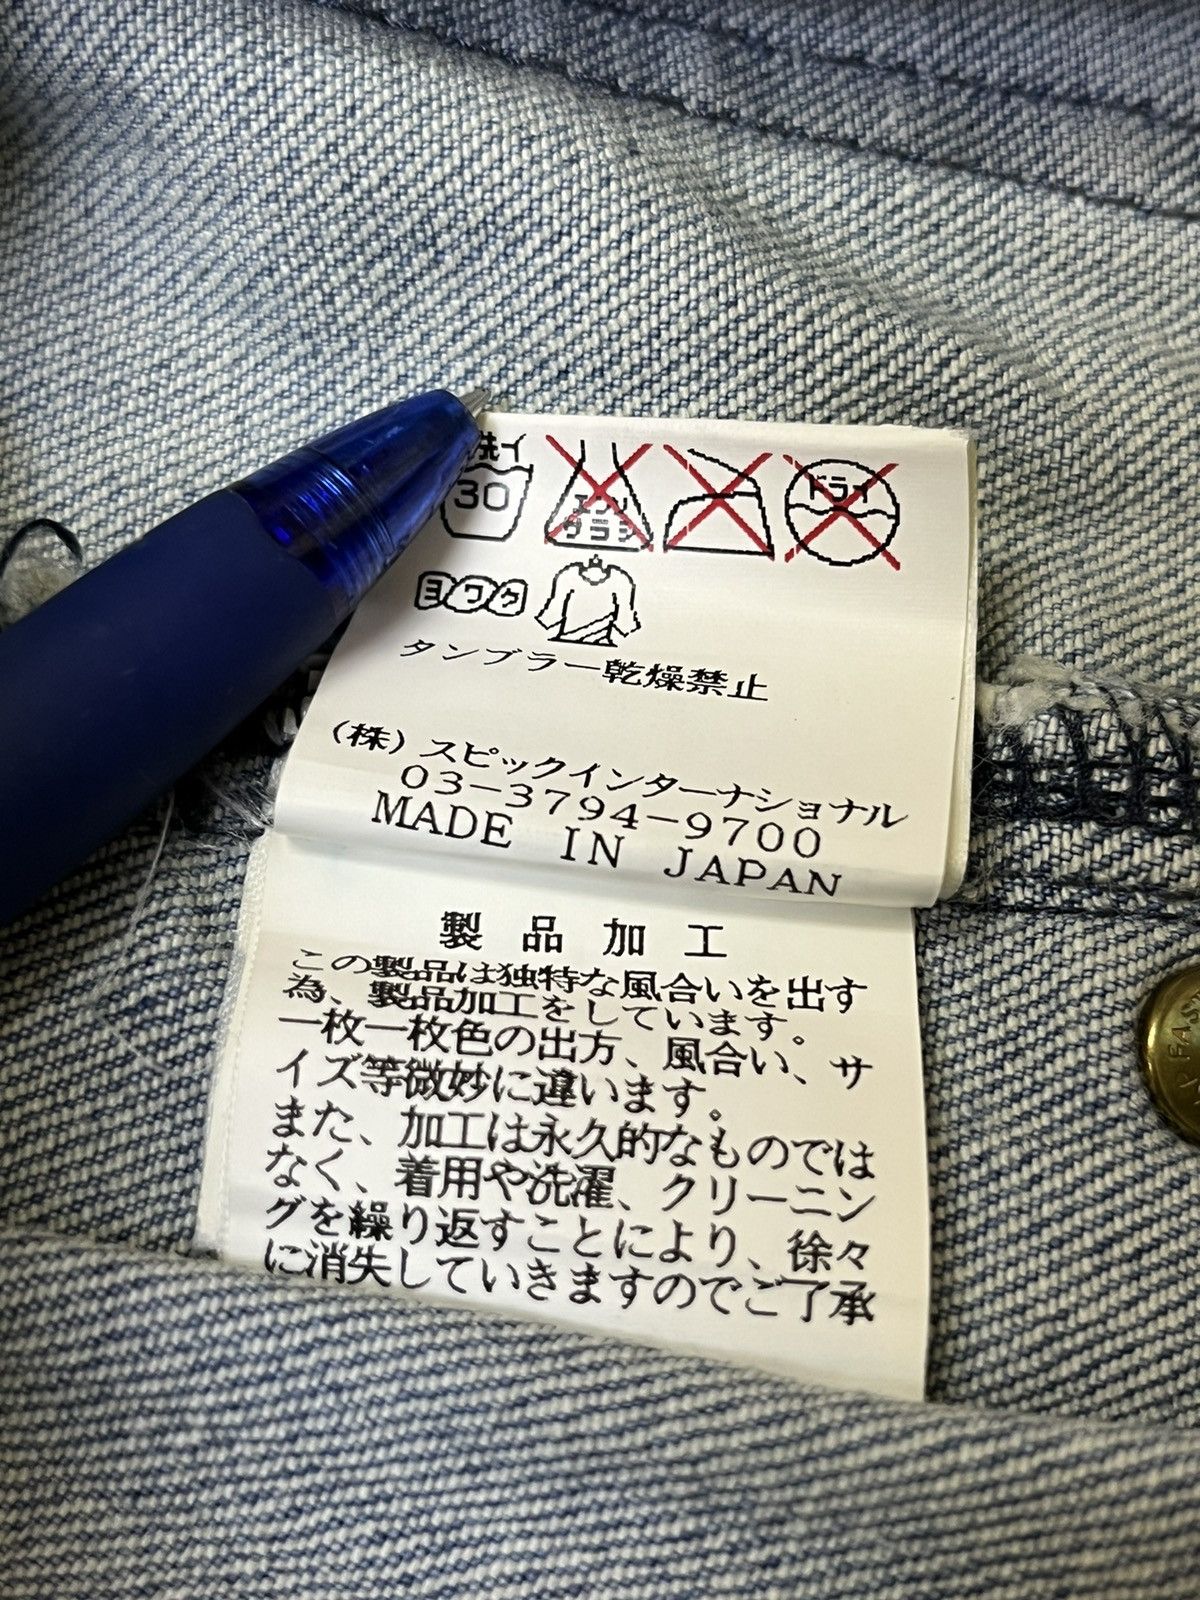 洗イ
30
エンソ
サラシ
ドライ
ヨワク
タンブラー乾燥禁止
(株)スピックインターナショナル
03-3794-9700
MADE IN JAPAN
製品加工
この製品は独特な風合いを出す
為、製品加工をしています。
一枚一枚色の出方、風合い、サ
イズ等微妙に違います。
また、加工は永久的なものでは
なく、着用や洗濯、クリーニン
グを繰り返すことにより、徐々
に消失していきますのでご了承